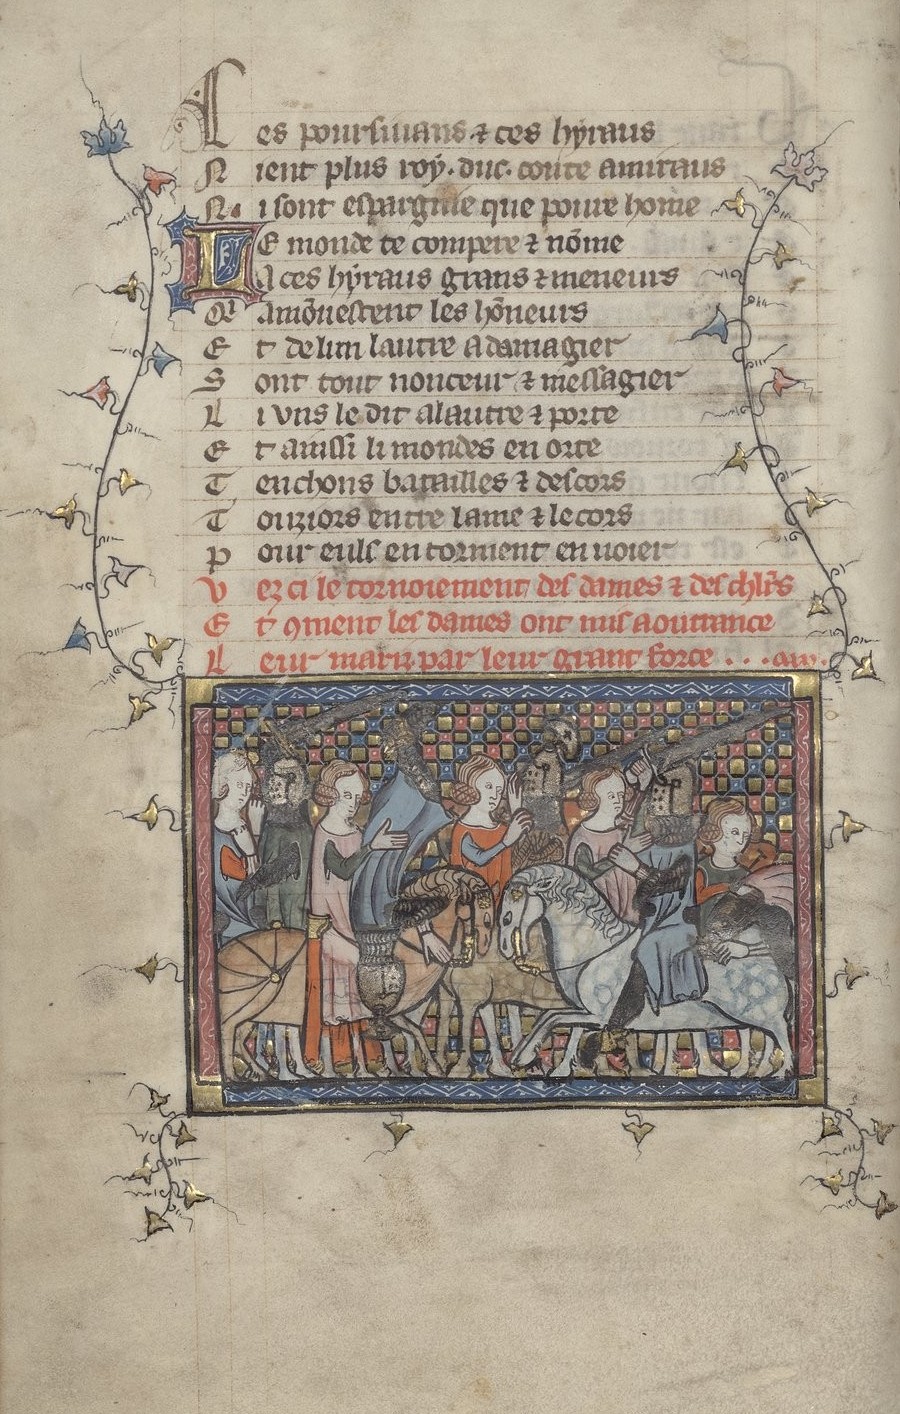 Les poursiuans ⁊ ces hyraus
Nient plus roy. duc. conte amiraus
Ni sont espargnie que poure home
Le monde te compere ⁊ nōme
A ces hyraus grans ⁊ meneurs
Qui amōnestent les hōneurs
Et de lun lautre adamagier
Sont tout nonceur ⁊ messagier
Li vns le dit a lautre ⁊ porte
Et aussi li mondes en orte
Tenchons batailles ⁊ descors
Touziors entre lame ⁊ le cors
Pour euls en torment enuoier
Vez ci le tornoiement des dames ⁊ des chlrs
Et 9ment les dames ont mis a outtrance
Leur mariz par leur grant force